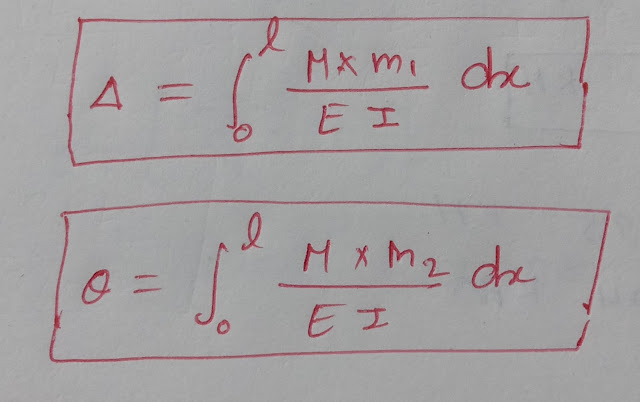 Δ = ∫₀ˡ (M × m₁)/(E I) dx
θ = ∫₀ˡ (M × m₂)/(E I) dx